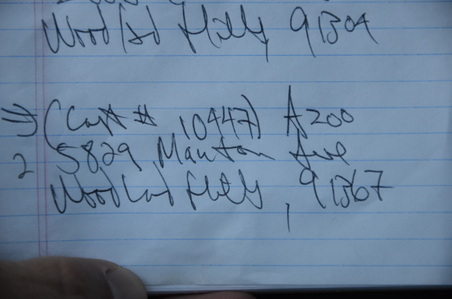 Woodland Hills, 91304
(Cust # 10447) A200
2 5829 Manton Ave
Woodland Hills, 91367